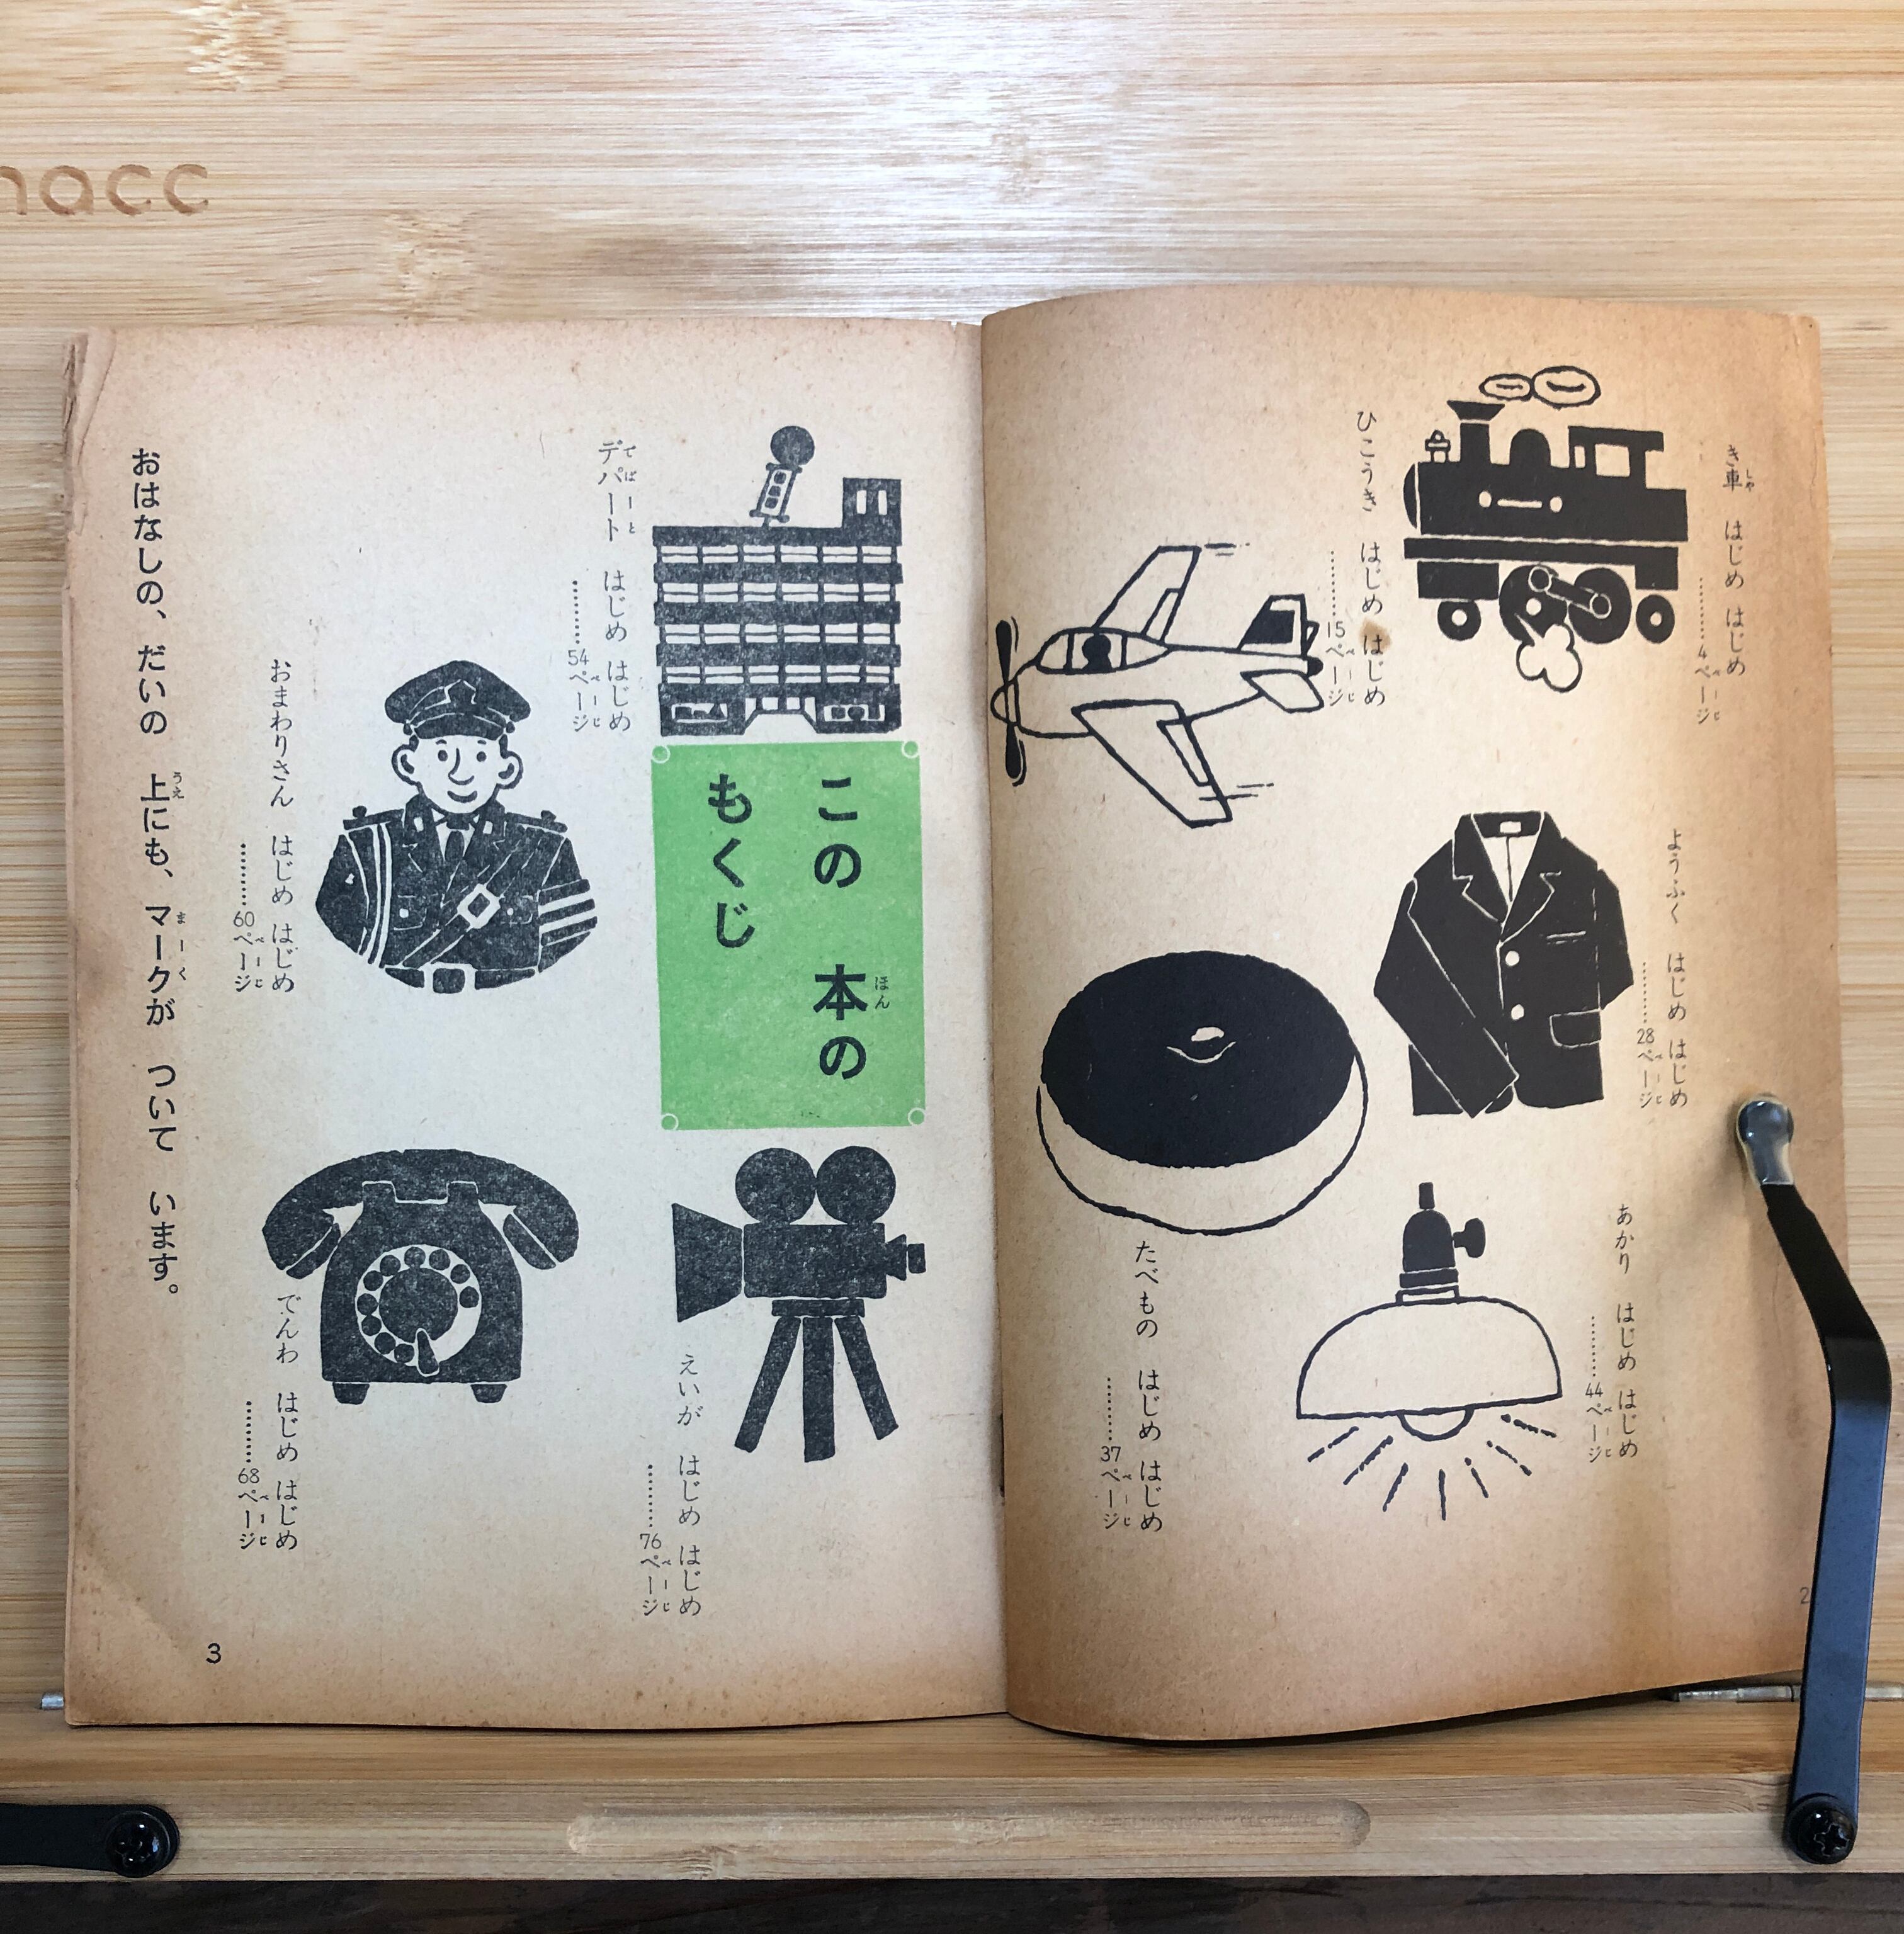 nacc
き車 はじめ はじめ
しゃ
………4ページ
ぺーじ
ひこうき はじめ はじめ
………15ページ
ぺーじ
ようふく はじめ はじめ
………28ページ
ぺーじ
たべもの はじめ はじめ
………37ページ
ぺーじ
あかり はじめ はじめ
………44ページ
ぺーじ
2
この 本の
ほん
もくじ
デパート はじめ はじめ
でぱーと
………54ページ
ぺーじ
おまわりさん はじめ はじめ
………60ページ
ぺーじ
でんわ はじめ はじめ
………68ページ
ぺーじ
えいが はじめ はじめ
………76ページ
ぺーじ
おはなしの、だいの 上にも、マークが ついて います。
うえ
まーく
3